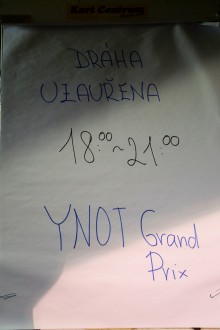 Kart Centrum
DRÁHA
UZAVŘENA
18:00~21:00
YNOT Grand
Prix